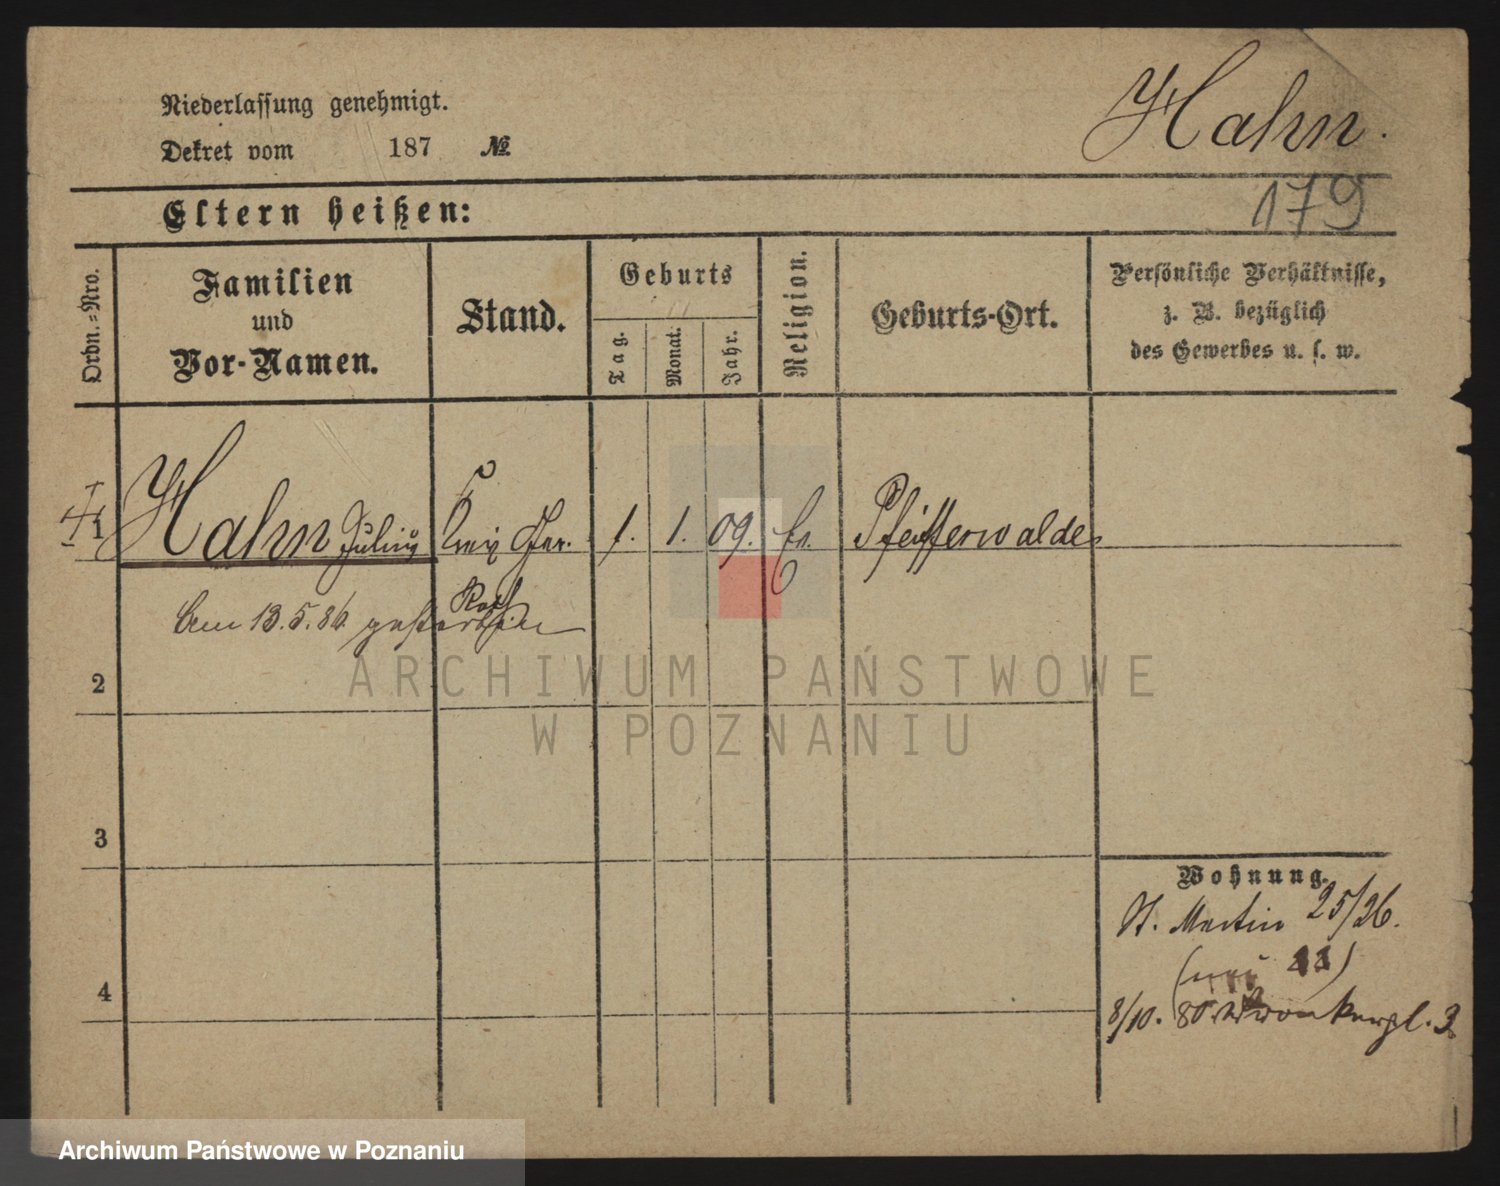 Niederlassung genehmigt.
Dekret vom 187 №
Hahn.
179
Eltern heißen:
Ordn.-Nro.
Familien
und
Vor-Namen.
Stand.
Geburts
Tag.
Monat.
Jahr.
Religion.
Geburts-Ort.
Persönliche Verhältnisse,
z. B. bezüglich
des Gewerbes u. s. w.
1 Hahn Julius 1. 1. 09. Ev. Pfeifferwalde
Am 13.5.86 gestorben
2
3
4
Wohnung.
St. Martin 25/26.
8/10. 80. Wronkerpl. 3
ARCHIWUM PAŃSTWOWE
W POZNANIU
Archiwum Państwowe w Poznaniu